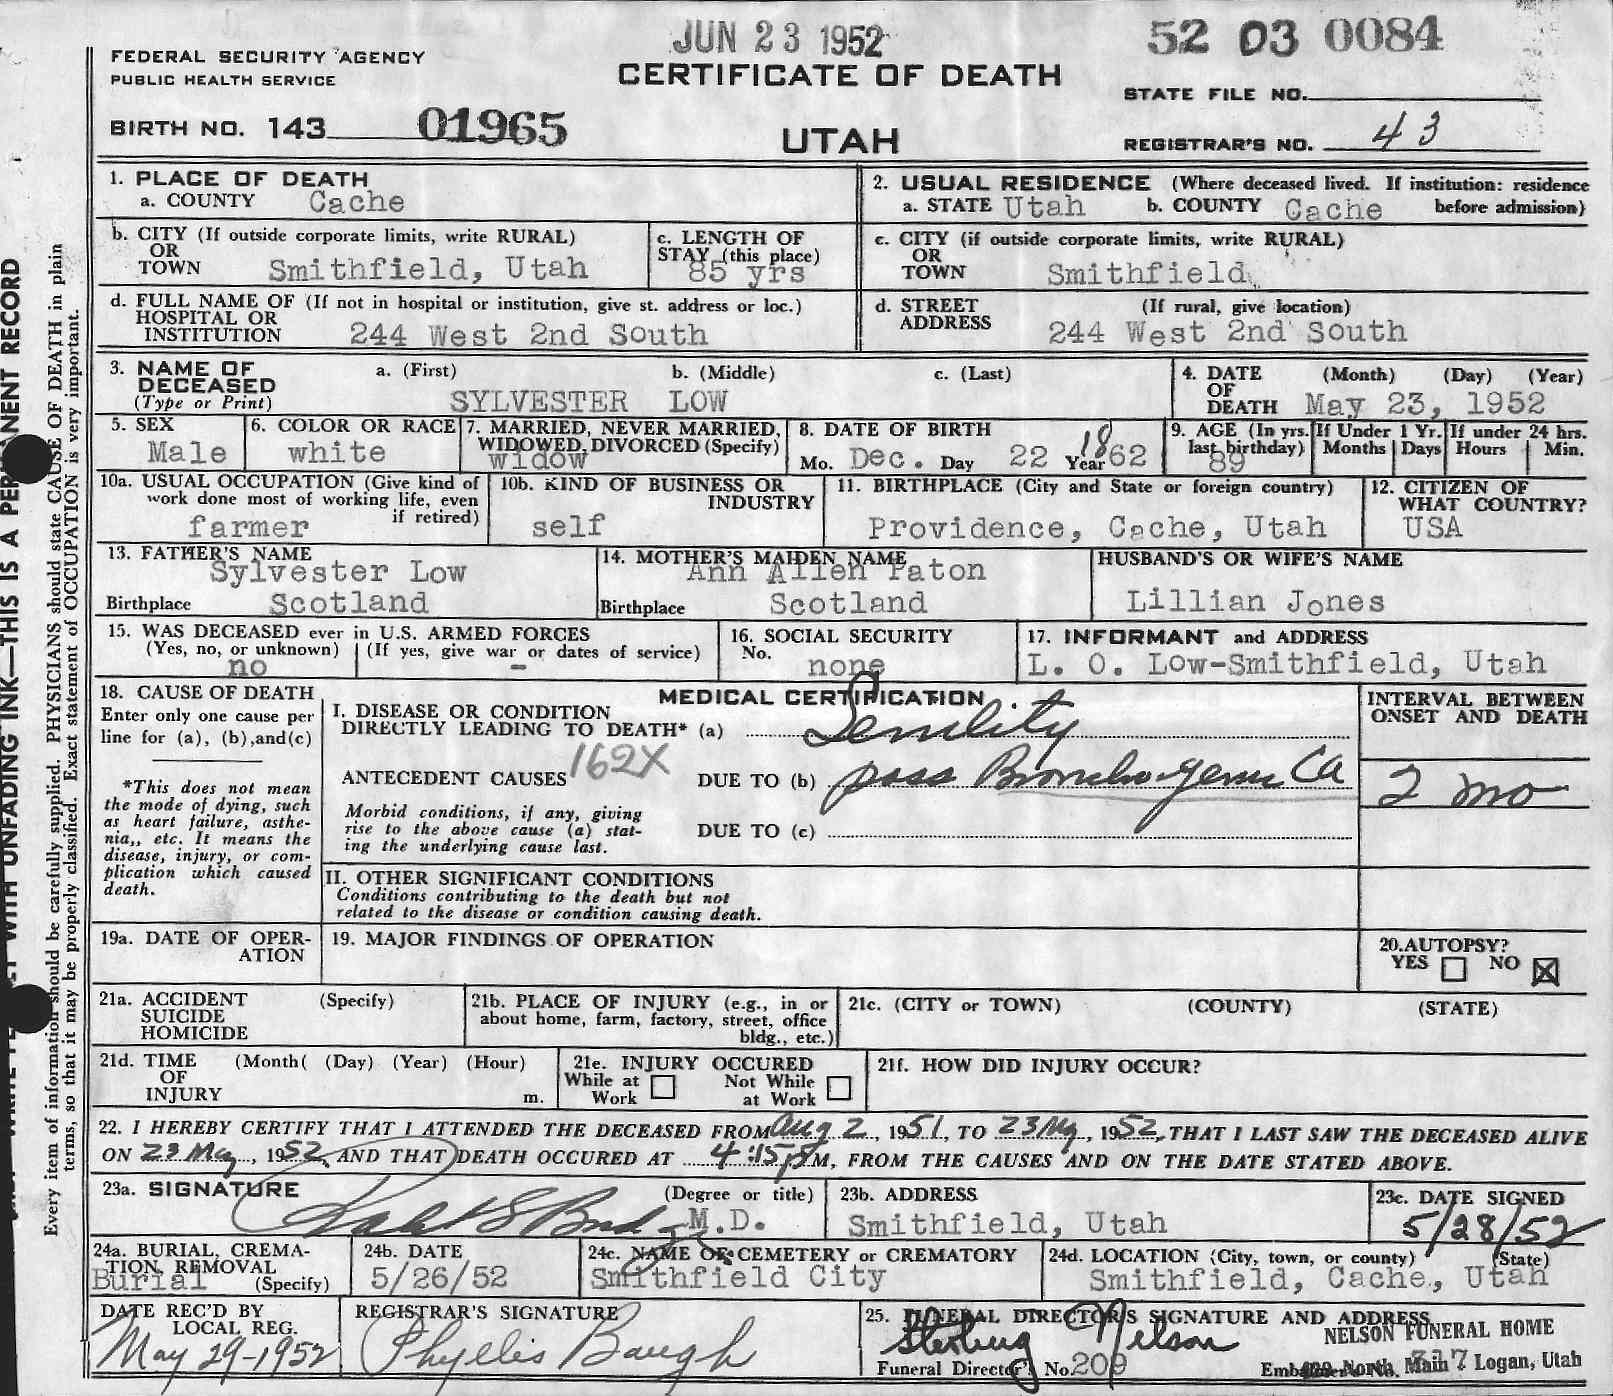 JUN 23 1952
52 03 0084
FEDERAL SECURITY AGENCY
PUBLIC HEALTH SERVICE
CERTIFICATE OF DEATH
STATE FILE NO.
BIRTH NO. 143 01965
UTAH
REGISTRAR'S NO. 43
1. PLACE OF DEATH
a. COUNTY Cache
2. USUAL RESIDENCE (Where deceased lived. If institution: residence before admission)
a. STATE Utah b. COUNTY Cache
b. CITY (If outside corporate limits, write RURAL)
OR
TOWN Smithfield, Utah
c. LENGTH OF
STAY (this place)
85 yrs
c. CITY (if outside corporate limits, write RURAL)
OR
TOWN Smithfield
d. FULL NAME OF (If not in hospital or institution, give st. address or loc.)
HOSPITAL OR
INSTITUTION 244 West 2nd South
d. STREET (If rural, give location)
ADDRESS 244 West 2nd South
3. NAME OF a. (First) b. (Middle) c. (Last)
DECEASED
(Type or Print) SYLVESTER LOW
4. DATE (Month) (Day) (Year)
OF
DEATH May 23, 1952
5. SEX
Male
6. COLOR OR RACE
white
7. MARRIED, NEVER MARRIED,
WIDOWED, DIVORCED (Specify)
widow
8. DATE OF BIRTH
Mo. Dec. Day 22 Year 1862
9. AGE (In yrs.
last birthday)
89
If Under 1 Yr.
Months Days
If under 24 hrs.
Hours Min.
10a. USUAL OCCUPATION (Give kind of
work done most of working life, even
if retired)
farmer
10b. KIND OF BUSINESS OR
INDUSTRY
self
11. BIRTHPLACE (City and State or foreign country)
Providence, Cache, Utah
12. CITIZEN OF
WHAT COUNTRY?
USA
13. FATHER'S NAME
Sylvester Low
Birthplace Scotland
14. MOTHER'S MAIDEN NAME
Ann Allen Paton
Birthplace Scotland
HUSBAND'S OR WIFE'S NAME
Lillian Jones
15. WAS DECEASED ever in U.S. ARMED FORCES
(Yes, no, or unknown) (If yes, give war or dates of service)
no -
16. SOCIAL SECURITY
No.
none
17. INFORMANT and ADDRESS
L. O. Low-Smithfield, Utah
18. CAUSE OF DEATH
Enter only one cause per
line for (a), (b), and (c)
*This does not mean
the mode of dying, such
as heart failure, asthe-
nia,, etc. It means the
disease, injury, or com-
plication which caused
death.
MEDICAL CERTIFICATION
I. DISEASE OR CONDITION
DIRECTLY LEADING TO DEATH* (a) Senility
162X
ANTECEDENT CAUSES DUE TO (b) poss Bronchogenic Ca
Morbid conditions, if any, giving
rise to the above cause (a) stat-
ing the underlying cause last.
DUE TO (c)
INTERVAL BETWEEN
ONSET AND DEATH
2 mo
II. OTHER SIGNIFICANT CONDITIONS
Conditions contributing to the death but not
related to the disease or condition causing death.
19a. DATE OF OPER-
ATION
19. MAJOR FINDINGS OF OPERATION
20. AUTOPSY?
YES NO
21a. ACCIDENT (Specify)
SUICIDE
HOMICIDE
21b. PLACE OF INJURY (e.g., in or
about home, farm, factory, street, office
bldg., etc.)
21c. (CITY or TOWN) (COUNTY) (STATE)
21d. TIME (Month( (Day) (Year) (Hour)
OF
INJURY m.
21e. INJURY OCCURED
While at Work Not While at Work
21f. HOW DID INJURY OCCUR?
22. I HEREBY CERTIFY THAT I ATTENDED THE DECEASED FROM Aug 2, 1951, TO 23 May, 1952, THAT I LAST SAW THE DECEASED ALIVE
ON 23 May, 1952, AND THAT DEATH OCCURED AT 4:15 pM, FROM THE CAUSES AND ON THE DATE STATED ABOVE.
23a. SIGNATURE (Degree or title)
M.D.
23b. ADDRESS
Smithfield, Utah
23c. DATE SIGNED
5/28/52
24a. BURIAL, CREMA-
TION, REMOVAL
Burial (Specify)
24b. DATE
5/26/52
24c. NAME OF CEMETERY or CREMATORY
Smithfield City
24d. LOCATION (City, town, or county) (State)
Smithfield, Cache, Utah
DATE REC'D BY
LOCAL REG.
May 29-1952
REGISTRAR'S SIGNATURE
Phyllis Baugh
25. FUNERAL DIRECTOR'S SIGNATURE AND ADDRESS
Sterling Nelson
NELSON FUNERAL HOME
Funeral Director's No. 209
North Main Logan, Utah
THIS IS A PERMANENT RECORD
WITH UNFADING INK
Every item of information should be carefully supplied. PHYSICIANS should state CAUSE OF DEATH in plain
terms, so that it may be properly classified. Exact statement of OCCUPATION is very important.